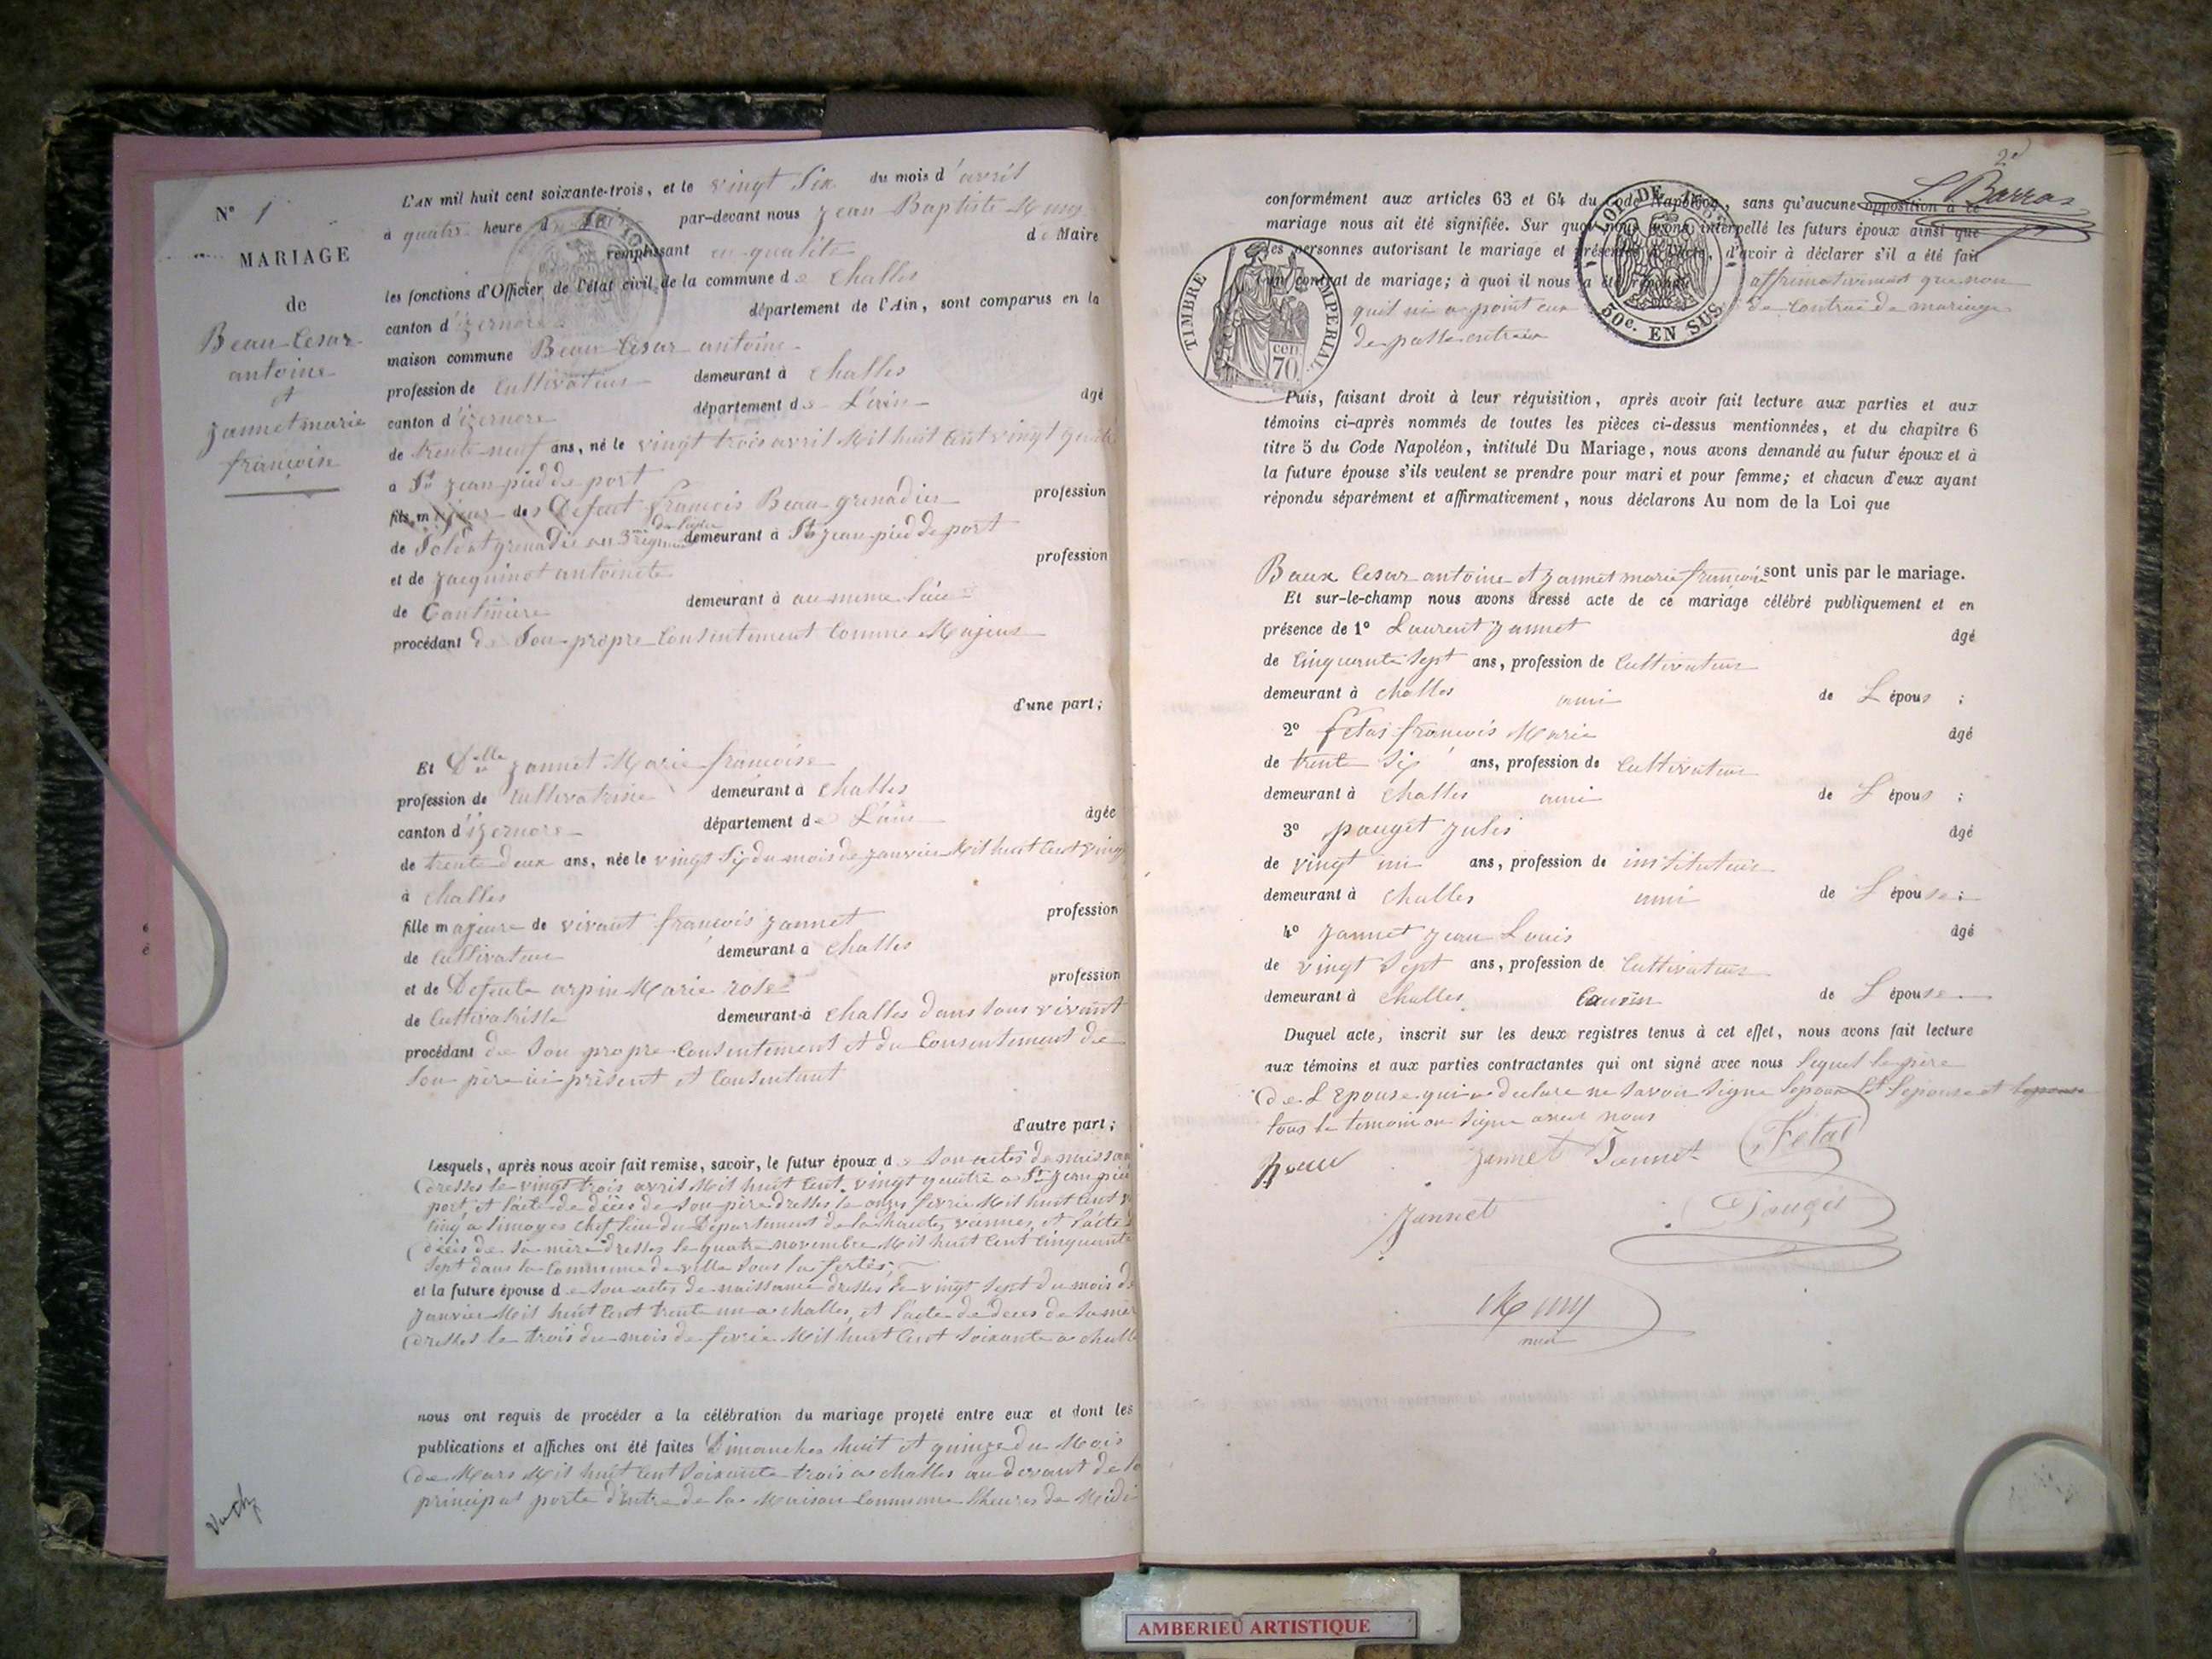 N° 1
MARIAGE
de
Beau Cesar
antoine
et
Jannet marie
françoise
L'AN mil huit cent soixante-trois, et le vingt Six du mois d'avril
à quatre heure du Soir par-devant nous Jean Baptiste
remplissant en qualité de Maire
les fonctions d'Officier de l'état civil de la commune de Challes
canton d'izernore département de l'Ain, sont comparus en la
maison commune Beau Cesar antoine
profession de Cultivateur demeurant à Challes
canton d'izernore département de L'ain âgé
de trente neuf ans, né le vingt trois avril Mil huit Cent vingt quatre
a St jean pied de port
fils majeur des Defeut françois Beau grenadier profession
de Soldat grenadie au 3me regiment de ligne demeurant à St jean pied de port
et de jacquinot antoinete profession
de Cantinière demeurant à au meme lieu
procédant de Son propre Consentement Comme Majeur
d'une part;
Et Delle Jannet Marie françoise
profession de Cultivatrise demeurant à Challes
canton d'izernore département de L'ain âgée
de trente deux ans, née le vingt Six du mois de janvier Mil huit Cent
à Challes
fille majeure de vivant françois Jannet profession
de Cultivateur demeurant à Challes
et de Defeute arpin Marie rose profession
de Cultivatrisse demeurant à Challes dans sons vivant
procédant de Son propre Consentement et du Consentement de
Son père ici présent et Consentant
d'autre part;
Lesquels, après nous avoir fait remise, savoir, le futur époux de Son actes de naissan
dresses le vingt trois avril Mil huit Cent vingt quatre a St jean pied
port, et l'acte de décés de Son père dresses le onzes fevrie Mil huit Cent
cinq a limoges chef lieu du Département de la haute viennes, et l'acte
décès de Sa mère dresses le quatre novembre Mil huit Cent Cinquante
Sept dans la Commune de ville Sous la fertés;
et la future épouse de Son actes de naissance dresses le vingt Sept du mois de
janvier Mil huit Cent trente un a challes, et l'acte de deces de Sa mer
dresses le trois du mois de fevrie Mil huit Cent Soixante a chall
nous ont requis de procéder à la célébration du mariage projeté entre eux et dont les
publications et affiches ont été faites Dimanches huit et quinze du Mois
de Mars Mil huit Cent Soixante trois a challes au devant de la
principal porte d'entre de la Maison Commune l'heures de Midi
2e
conformément aux articles 63 et 64 du Code Napoléon, sans qu'aucune opposition à ce
mariage nous ait été signifiée. Sur quoi nous avons interpellé les futurs époux ainsi que
les personnes autorisant le mariage et présentes à l'acte, d'avoir à déclarer s'il a été fait
un contrat de mariage; à quoi il nous a été répondu affirmativement que non
quil ni a point eux de Contrat de mariage
de passe entreux
L Barras
TIMBRE IMPERIAL
cen. 70.
LOI DE
50c. EN SUS
Puis, faisant droit à leur réquisition, après avoir fait lecture aux parties et aux
témoins ci-après nommés de toutes les pièces ci-dessus mentionnées, et du chapitre 6
titre 5 du Code Napoléon, intitulé Du Mariage, nous avons demandé au futur époux et à
la future épouse s'ils veulent se prendre pour mari et pour femme; et chacun d'eux ayant
répondu séparément et affirmativement, nous déclarons Au nom de la Loi que
Beaux Cesar antoine et Jannet marie françoise sont unis par le mariage.
Et sur-le-champ nous avons dressé acte de ce mariage célébré publiquement et en
présence de 1° Laurent Jannet âgé
de Cinquante Sept ans, profession de Cultivateur
demeurant à Challes ami de L épous ;
2° fétas françois Marie âgé
de trente Six ans, profession de Cultivateur
demeurant à Challes ami de L épous ;
3° pouget Jules âgé
de vingt un ans, profession de instituteur
demeurant à Challes ami de L épouse ;
4° Jannet Jean Louis âgé
de vingt Sept ans, profession de Cultivateur
demeurant à Challes Cousin de L épouse
Duquel acte, inscrit sur les deux registres tenus à cet effet, nous avons fait lecture
aux témoins et aux parties contractantes qui ont signé avec nous lequel le père
de L'Epouse qui a declare ne Savoir Signe lepoux Et lepouse et lepouse
tous le temoin on Signe avec nous
Beau Jannet Jannet Fétas
Jannet Pouget
AMBERIEU ARTISTIQUE